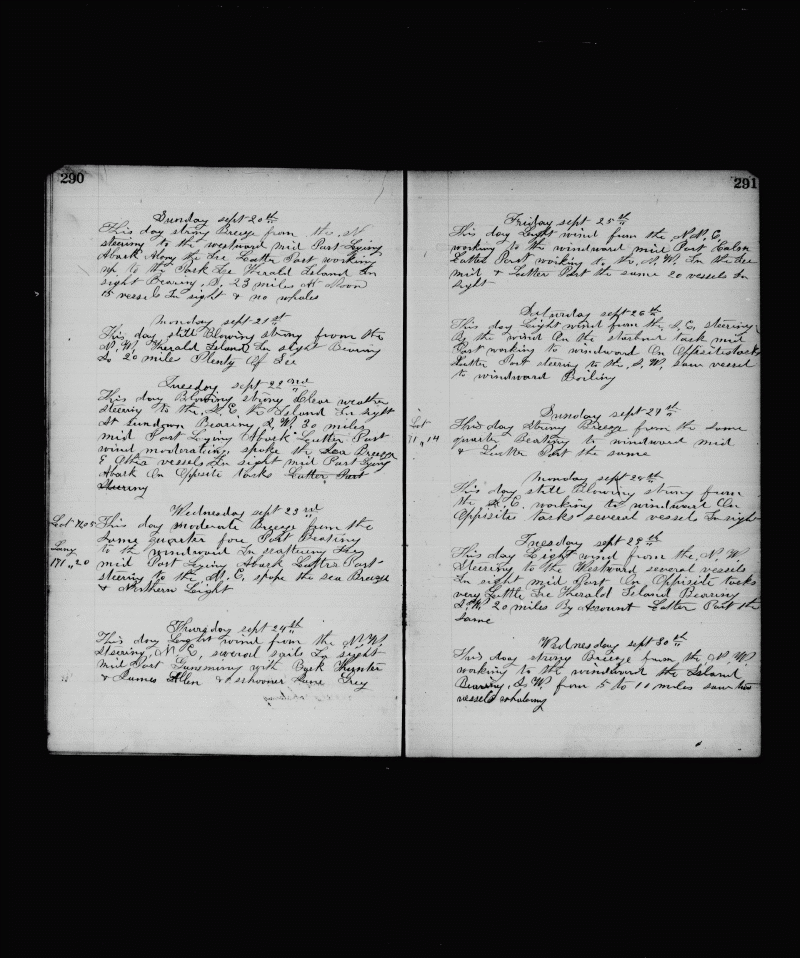 290
Sunday sept 20th
This day strong Breeze from the N
steering to the westward mid Part Lying
Aback Along the Ice Latter Part working
up to the Pack Ice Herald Island In
sight Bearing S. 23 miles At Noon
15 vessels In sight & no whales
Monday sept 21st
This day still Blowing strong from the
N.W. Herald Island In sight Bearing
So 20 miles Plenty Of Ice
Tuesday sept 22nd
This day Blowing strong Clear weather
steering to the N.E. the Island In sight
At Sundown Bearing S.W. 30 miles
mid Part Lying Aback Latter Part
wind moderating spoke the Sea Breeze
& Other vessels In sight mid Part Lying
Aback On Oppsite tacks Latter Part
Steering
Wednesday sept 23rd
Lat No 5
Long
171 " 20
This day moderate Breeze from the
same quarter fore Part Beating
to the windward In scattering Ice
mid Part Lying Aback Latter Part
steering to the N.E. spoke the sea Breeze
& Northern Leight
Thursday sept 24th
This day Leight wind from the N.W.
Steering N.E. several sails In sight
Mid Part Gamming with Bark Hunter
& James Allen & schooner Jane Grey
291
Friday sept 25th
This day Leight wind from the N.N.E.
working to the windward mid Part Calm
Latter Part working to the N.W. In the Ice
mid & Latter Part the same 20 vessels In
sight
Saturday sept 26th
This day Light wind from the S.E. steering
By the wind On the starboard tack mid
Part working to windward On Oppisite tacks
Latter Part steering to the S.W. saw vessel
to windward Boiling
Sunday sept 27th
Lat
71 " 14
This day Strong Breeze from the same
quarter Beating to windward mid
& Latter Part the same
Monday sept 28th
This day still Blowing strong from
the E. working to windward On
Oppisite tacks several vessels In sight
Tuesday sept 29th
This day Light wind from the N.W.
Steering to the Westward several vessels
In sight mid Part On Oppisite tacks
very Little Ice Herald Island Bearing
S.W. 20 miles By Acount Latter Part the
same
Wednesday sept 30th
This day strong Breeze from the N.W.
working to the windward the Island
Bearing S.W. from 5 to 10 miles saw two
vessels whaleing